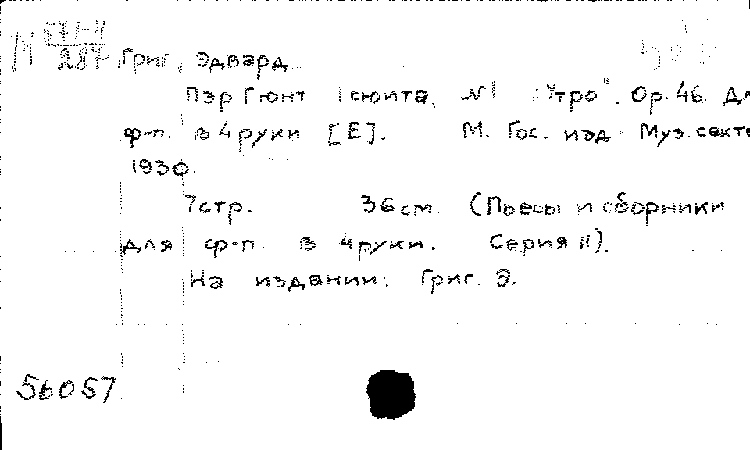 М 571-II
287
Григ, Эдвард
Пэр Гюнт I сюита. №1 "Утро". Op. 46. Дл
ф-п. в 4 руки [Е]. М. Гос. изд. Муз. секто
1930.
7 стр. 36 см. (Пьесы и сборники
для ф-п. в 4 руки. Серия II).
На издании: Григ. Э.
56057